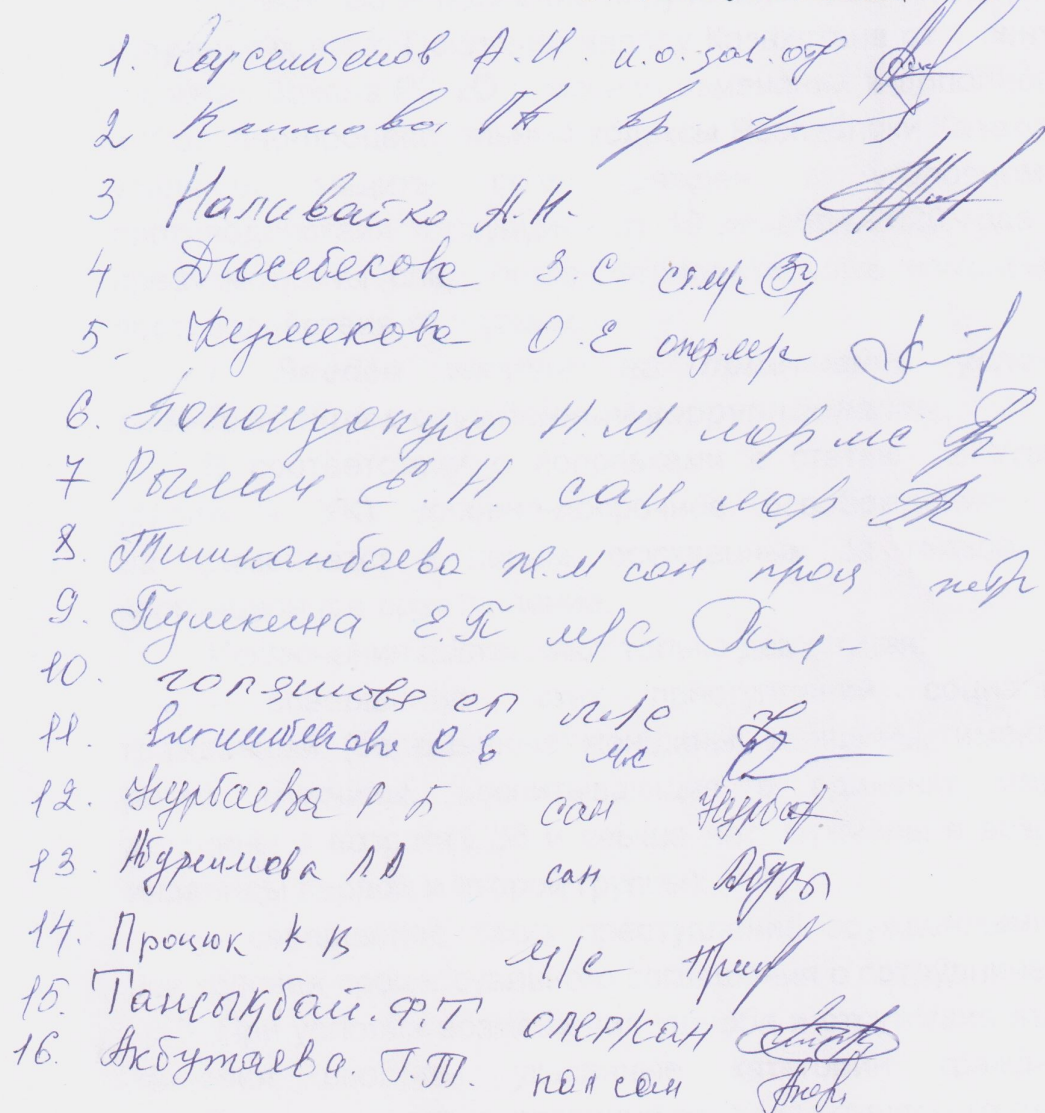 1. Сарсембенов А.И. и.о. зав. отд
2 Климова ГА вр
3 Наливайко А.Н.
4 Дюсебекова З.С ст.м/с
5. Кермекова О.Е опер м/с
6. Попондопуло Н.М мор мс
7 Рылач Е.Н сан мор
8. Тишканбаева Ж.М сан проц
9. Пушкина Е.П м/с
10. голяшова сп м/с
11. С В мс
12. Нурбаева Р Б сан Нурбаф
13. Абдреимова ЛА сан Абдры
14. Процюк К В м/с
15. Тансықбай. Ф.Т опер/сан
16. Акбутаева. Г.Т. пал сан